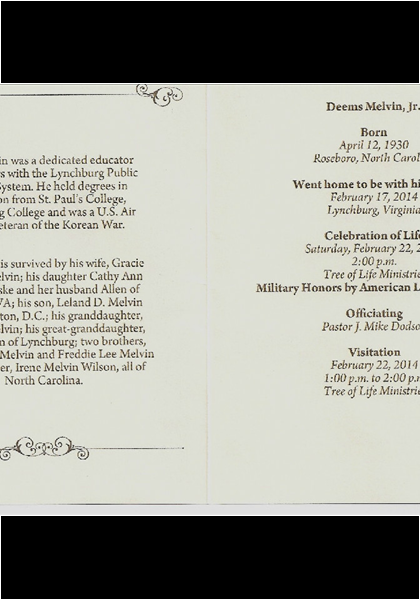 in was a dedicated educator
s with the Lynchburg Public
ystem. He held degrees in
on from St. Paul's College,
g College and was a U.S. Air
eteran of the Korean War.
is survived by his wife, Gracie
elvin; his daughter Cathy Ann
ske and her husband Allen of
VA; his son, Leland D. Melvin
ton, D.C.; his granddaughter,
elvin; his great-granddaughter,
n of Lynchburg; two brothers,
Melvin and Freddie Lee Melvin
er, Irene Melvin Wilson, all of
North Carolina.
Deems Melvin, Jr.
Born
April 12, 1930
Roseboro, North Carol
Went home to be with hi
February 17, 2014
Lynchburg, Virginia
Celebration of Life
Saturday, February 22, 2
2:00 p.m.
Tree of Life Ministrie
Military Honors by American L
Officiating
Pastor J. Mike Dodso
Visitation
February 22, 2014
1:00 p.m. to 2:00 p.m
Tree of Life Ministrie